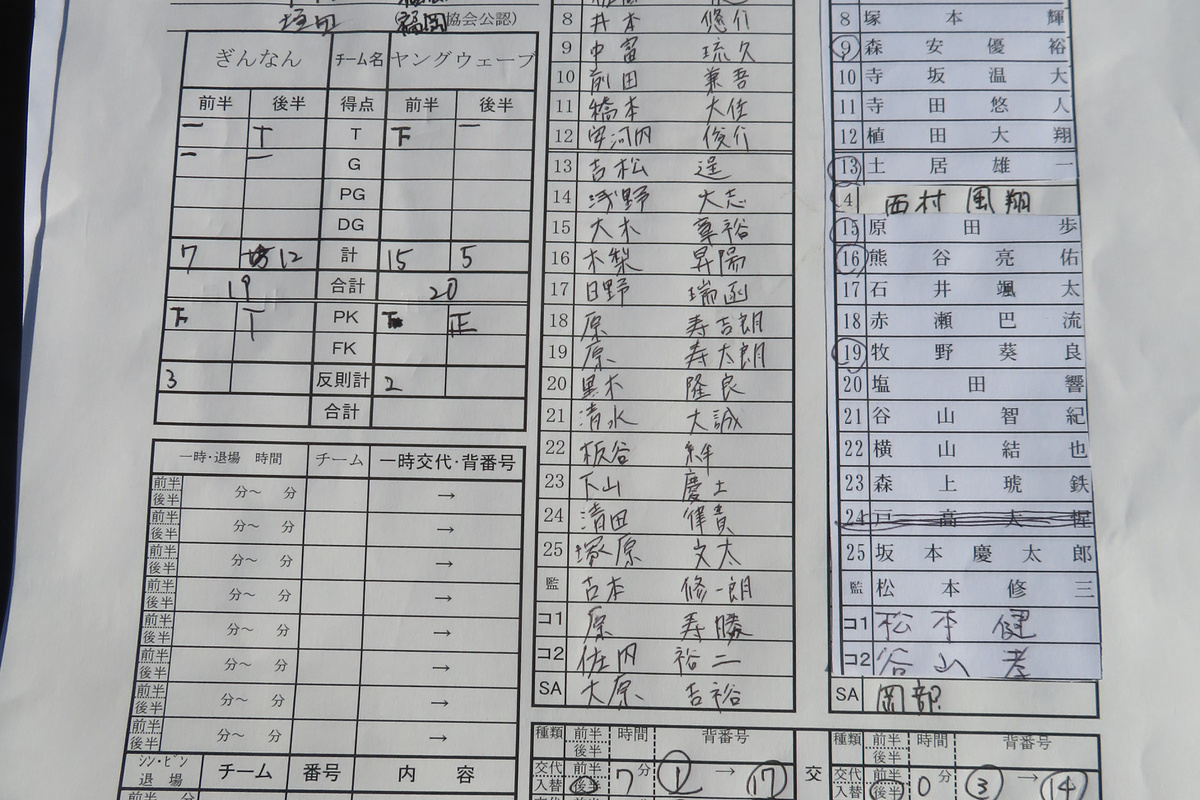 協会公認)
ぎんなん チーム名 ヤングウェーブ
前半 後半 得点 前半 後半
一 T T 下 一
一 一 G
PG
DG
7 12 計 15 5
19 合計 20
下 T PK 正
FK
3 反則計 2
合計
一時・退場 時間 チーム 一時交代・背番号
前半 後半 分～ 分 →
前半 後半 分～ 分 →
前半 後半 分～ 分 →
前半 後半 分～ 分 →
前半 後半 分～ 分 →
前半 後半 分～ 分 →
前半 後半 分～ 分 →
前半 後半 分～ 分 →
シン・ビン 退場 チーム 番号 内 容
前半 分
8 井本 悠介
9 中富 琉久
10 前田 兼吾
11 橋本 大任
12 安河内 俊介
13 吉松 遥
14 浅野 大志
15 大木 章裕
16 木梨 昇陽
17 日野 瑞函
18 原 寿吉朗
19 原 寿太朗
20 黒木 隆良
21 清水 大誠
22 板谷 絆
23 下山 慶士
24 清田 律貴
25 塚原 文太
監 吉本 修一朗
コ1 原 寿勝
コ2 佐内 裕二
SA 大原 吉裕
種類 前半 後半 時間 背番号
交代 入替 前半 後半 7分 1 → 17
交
8 塚本輝
9 森安優裕
10 寺坂温大
11 寺田悠人
12 植田大翔
13 土居雄一
4 西村 風翔
15 原田歩
16 熊谷亮佑
17 石井颯太
18 赤瀬巴流
19 牧野葵良
20 塩田響
21 谷山智紀
22 横山結也
23 森上琥鉄
24 戸高大
25 坂本慶太郎
監 松本修三
コ1 松本 健
コ2 谷山 孝
SA 岡部
種類 前半 後半 時間 背番号
交代 入替 前半 後半 0分 3 → 14